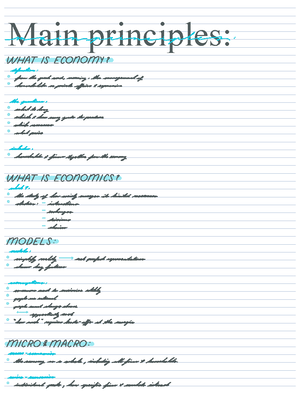 Main principles:
WHAT IS ECONOMY?
definition:
from the greek word, meaning - the management of
households or private affairs & expenses
the questions:
what to buy
which & how many goods to produce
which resources
what price
households & firms together form the economy
WHAT IS ECONOMICS?
what?:
the study of how society manages its limited resources
studies: - interactions
exchanges
decisions
choices
MODELS:
models:
simplify reality → not perfect representations
shows key factors
assumptions:
everyone want to maximize utility
people are rational
people must always choose
→ opportunity cost
requires trade-offs at the margin
MICRO & MACRO:
macro - economics
the economy as a whole, including all firms & households
micro - economics
individual parts, how specific firms & markets interact